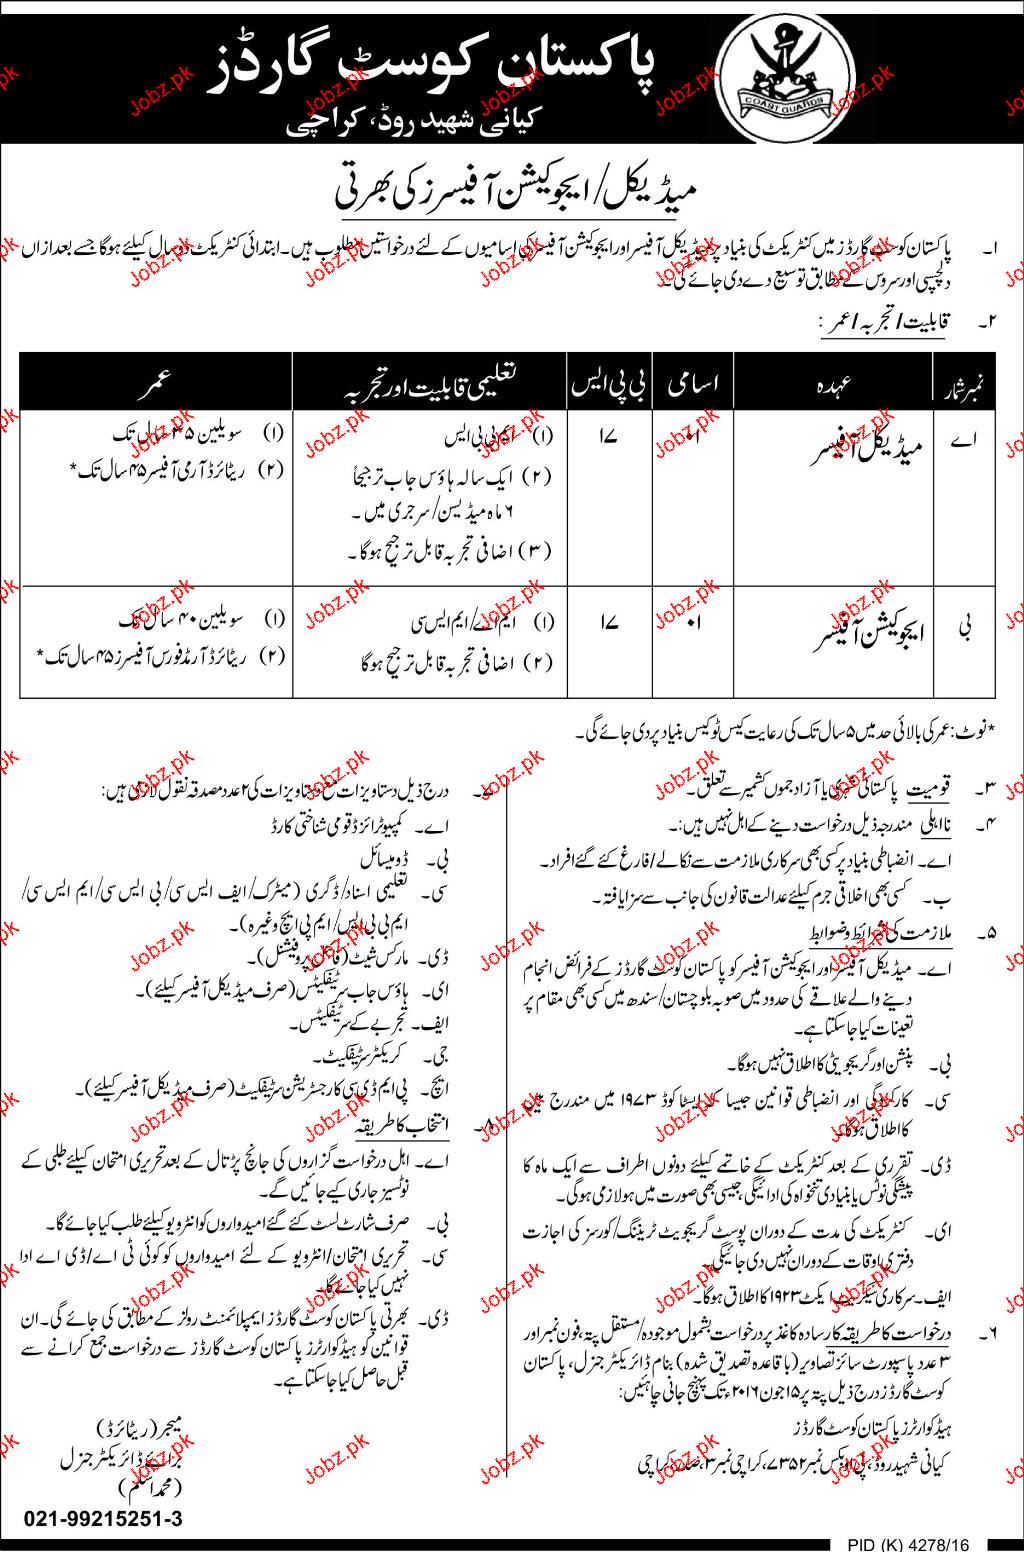 پاکستان کوسٹ گارڈز
کیانی شہید روڈ، کراچی
COAST GUARDS
میڈیکل/ایجوکیشن آفیسرز کی بھرتی
۱۔ پاکستان کوسٹ گارڈز میں کنٹریکٹ کی بنیاد پر میڈیکل آفیسر اور ایجوکیشن آفیسر کی اسامیوں کے لئے درخواستیں مطلوب ہیں۔ ابتدائی کنٹریکٹ دو سال کیلئے ہوگا جسے بعد ازاں
دلچسپی اور سروس کے مطابق توسیع دے دی جائے گی۔
۲۔ قابلیت/تجربہ/عمر:
نمبر شمار عہدہ اسامی بی پی ایس تعلیمی قابلیت اور تجربہ عمر
اے میڈیکل آفیسر ۰۱ ۱۷ (۱) ایم بی بی ایس (۱) سویلین ۴۵ سال تک
(۲) ایک سالہ ہاؤس جاب ترجیحاً (۲) ریٹائرڈ آرمی آفیسر ۴۵ سال تک*
۶ ماہ میڈیسن/سرجری میں۔
(۳) اضافی تجربہ قابل ترجیح ہوگا۔
بی ایجوکیشن آفیسر ۰۱ ۱۷ (۱) ایم اے/ایم ایس سی (۱) سویلین ۴۰ سال تک
(۲) اضافی تجربہ قابل ترجیح ہوگا (۲) ریٹائرڈ آرمڈ فورس آفیسرز ۴۵ سال تک*
*نوٹ: عمر کی بالائی حد میں ۵ سال تک کی رعایت کیس ٹو کیس بنیاد پر دی جائے گی۔
۳۔ قومیت پاکستانی شہری یا آزاد جموں کشمیر سے تعلق۔
۴۔ نااہلی مندرجہ ذیل درخواست دینے کے اہل نہیں ہیں:۔
اے۔ انضباطی بنیاد پر کسی بھی سرکاری ملازمت سے نکالے/فارغ کئے گئے افراد۔
ب۔ کسی بھی اخلاقی جرم کیلئے عدالت قانون کی جانب سے سزا یافتہ۔
۵۔ ملازمت کی شرائط و ضوابط
اے۔ میڈیکل آفیسر اور ایجوکیشن آفیسر کو پاکستان کوسٹ گارڈز کے فرائض انجام
دینے والے علاقے کی حدود میں صوبہ بلوچستان/سندھ میں کسی بھی مقام پر
تعینات کیا جاسکتا ہے۔
بی۔ پنشن اور گریجویٹی کا اطلاق نہیں ہوگا۔
سی۔ کارکردگی اور انضباطی قوانین جیسا کہ ایسٹا کوڈ ۱۹۷۳ میں مندرج ہیں
کا اطلاق ہوگا۔
ڈی۔ تقرری کے بعد کنٹریکٹ کے خاتمے کیلئے دونوں اطراف سے ایک ماہ کا
پیشگی نوٹس یا بنیادی تنخواہ کی ادائیگی، جیسی بھی صورت میں ہو لازمی ہوگی۔
ای۔ کنٹریکٹ کی مدت کے دوران پوسٹ گریجویٹ ٹریننگ/کورسز کی اجازت
دفتری اوقات کے دوران نہیں دی جائیگی۔
ایف۔ سرکاری سیکریٹ ایکٹ ۱۹۲۳ کا اطلاق ہوگا۔
۶۔ درخواست کا طریقہ کار سادہ کاغذ پر درخواست بشمول موجودہ/مستقل پتہ، فون نمبر اور
۳ عدد پاسپورٹ سائز تصاویر (باقاعدہ تصدیق شدہ) بنام ڈائریکٹر جنرل، پاکستان
کوسٹ گارڈز درج ذیل پتہ پر ۱۵ جون ۲۰۱۶ء تک پہنچ جانی چاہئیں:
ہیڈ کوارٹرز پاکستان کوسٹ گارڈز
کیانی شہید روڈ، پی او بکس نمبر ۷۳۵۲، کراچی نمبر ۳، صدر کراچی
۷۔ درج ذیل دستاویزات مع دستاویزات کی ۲ عدد مصدقہ نقول لازمی ہیں:
اے۔ کمپیوٹرائزڈ قومی شناختی کارڈ
بی۔ ڈومیسائل
سی۔ تعلیمی اسناد/ڈگری (میٹرک/ایف ایس سی/بی ایس سی/ایم ایس سی/
ایم بی بی ایس/ایم پی ایچ وغیرہ)۔
ڈی۔ مارکس شیٹ (فائنل پروفیشنل)۔
ای۔ ہاؤس جاب سرٹیفکیٹس (صرف میڈیکل آفیسر کیلئے)۔
ایف۔ تجربے کے سرٹیفکیٹس۔
جی۔ کریکٹر سرٹیفکیٹ۔
ایچ۔ پی ایم ڈی سی کا رجسٹریشن سرٹیفکیٹ (صرف میڈیکل آفیسر کیلئے)۔
۸۔ انتخاب کا طریقہ
اے۔ اہل درخواست گزاروں کی جانچ پڑتال کے بعد تحریری امتحان کیلئے طلبی کے
نوٹسیز جاری کیے جائیں گے۔
بی۔ صرف شارٹ لسٹ کئے گئے امیدواروں کو انٹرویو کیلئے طلب کیا جائے گا۔
سی۔ تحریری امتحان/انٹرویو کے لئے امیدواروں کو کوئی ٹی اے/ڈی اے ادا
نہیں کیا جائے گا۔
ڈی۔ بھرتی پاکستان کوسٹ گارڈز ایمپلائمنٹ رولز کے مطابق کی جائے گی۔ ان
قوانین کو ہیڈ کوارٹرز پاکستان کوسٹ گارڈز سے درخواست جمع کرانے سے
قبل حاصل کیا جاسکتا ہے۔
میجر (ریٹائرڈ)
برائے ڈائریکٹر جنرل
(محمد اسلم)
021-99215251-3
PID (K) 4278/16
Jobz.pk